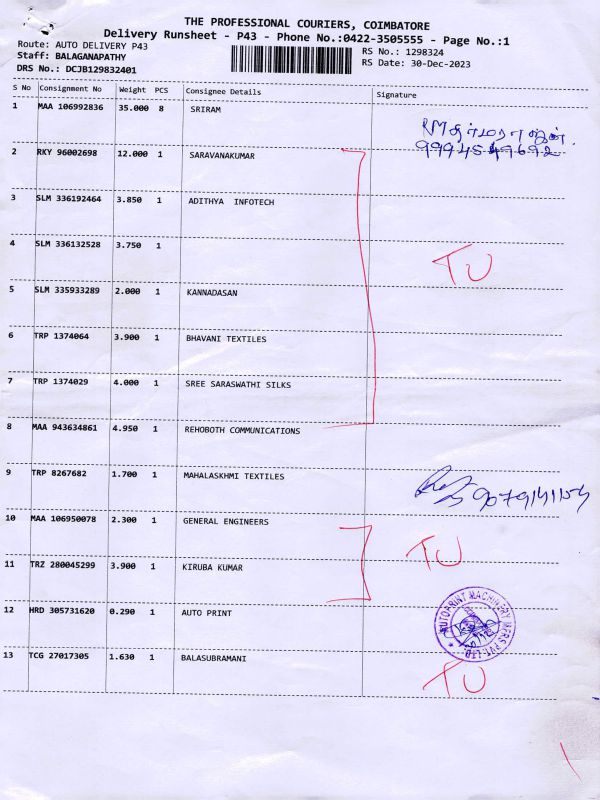 THE PROFESSIONAL COURIERS, COIMBATORE
Delivery Runsheet - P43 - Phone No.:0422-3505555 - Page No.:1
Route: AUTO DELIVERY P43 RS No.: 1298324
Staff: BALAGANAPATHY RS Date: 30-Dec-2023
DRS No.: DCJB129832401
S No Consignment No Weight PCS Consignee Details Signature
1 MAA 106992836 35.000 8 SRIRAM
9994549692
2 RKY 96002698 12.000 1 SARAVANAKUMAR
3 SLM 336192464 3.850 1 ADITHYA INFOTECH
4 SLM 336132528 3.750 1 TU
5 SLM 335933289 2.000 1 KANNADASAN
6 TRP 1374064 3.900 1 BHAVANI TEXTILES
7 TRP 1374029 4.000 1 SREE SARASWATHI SILKS
8 MAA 943634861 4.950 1 REHOBOTH COMMUNICATIONS
9 TRP 8267682 1.700 1 MAHALASKHMI TEXTILES
10 MAA 106950078 2.300 1 GENERAL ENGINEERS
11 TRZ 280045299 3.900 1 KIRUBA KUMAR TU
12 HRD 305731620 0.290 1 AUTO PRINT AUTOPRINT MACHINERY MFRS PVT. LTD.
13 TCG 27017305 1.630 1 BALASUBRAMANI TU